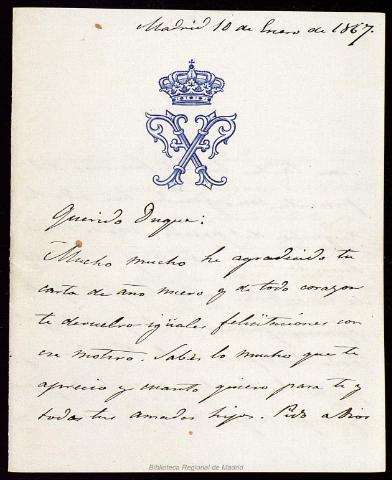 Madrid 10 de Enero de 1867.
Querido Duque:
Mucho mucho he agradecido tu
carta de año nuevo y de todo corazon
te devuelvo igüales felicitaciones con
ese motivo. Sabes lo mucho que te
aprecio y cuanto quiero para ti y
todos tus amados hijos. Pido a Dios
Biblioteca Regional de Madrid